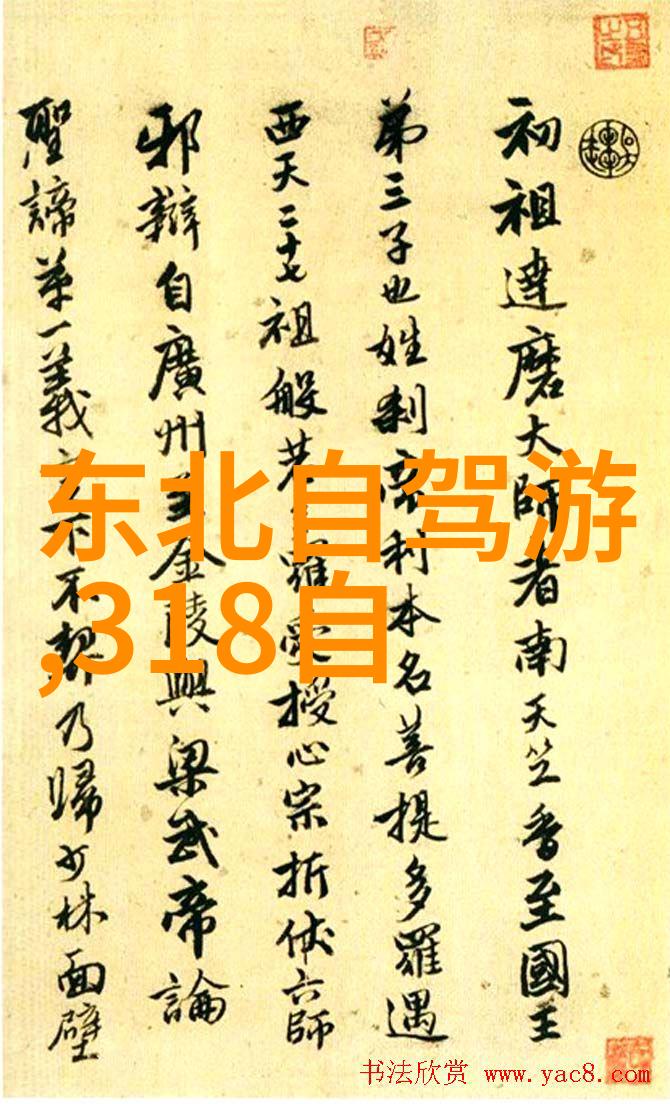 初祖達磨大師者南天竺香至國王
第三子也姓刹帝利本名菩提多羅遇
西天二十七祖般若多羅受授心宗折伏六師
邪辯自廣州至金陵與梁武帝論
聖諦第一義 不契乃歸少林面壁
东北自驾游
,318自
书法欣赏 www.yac8.com